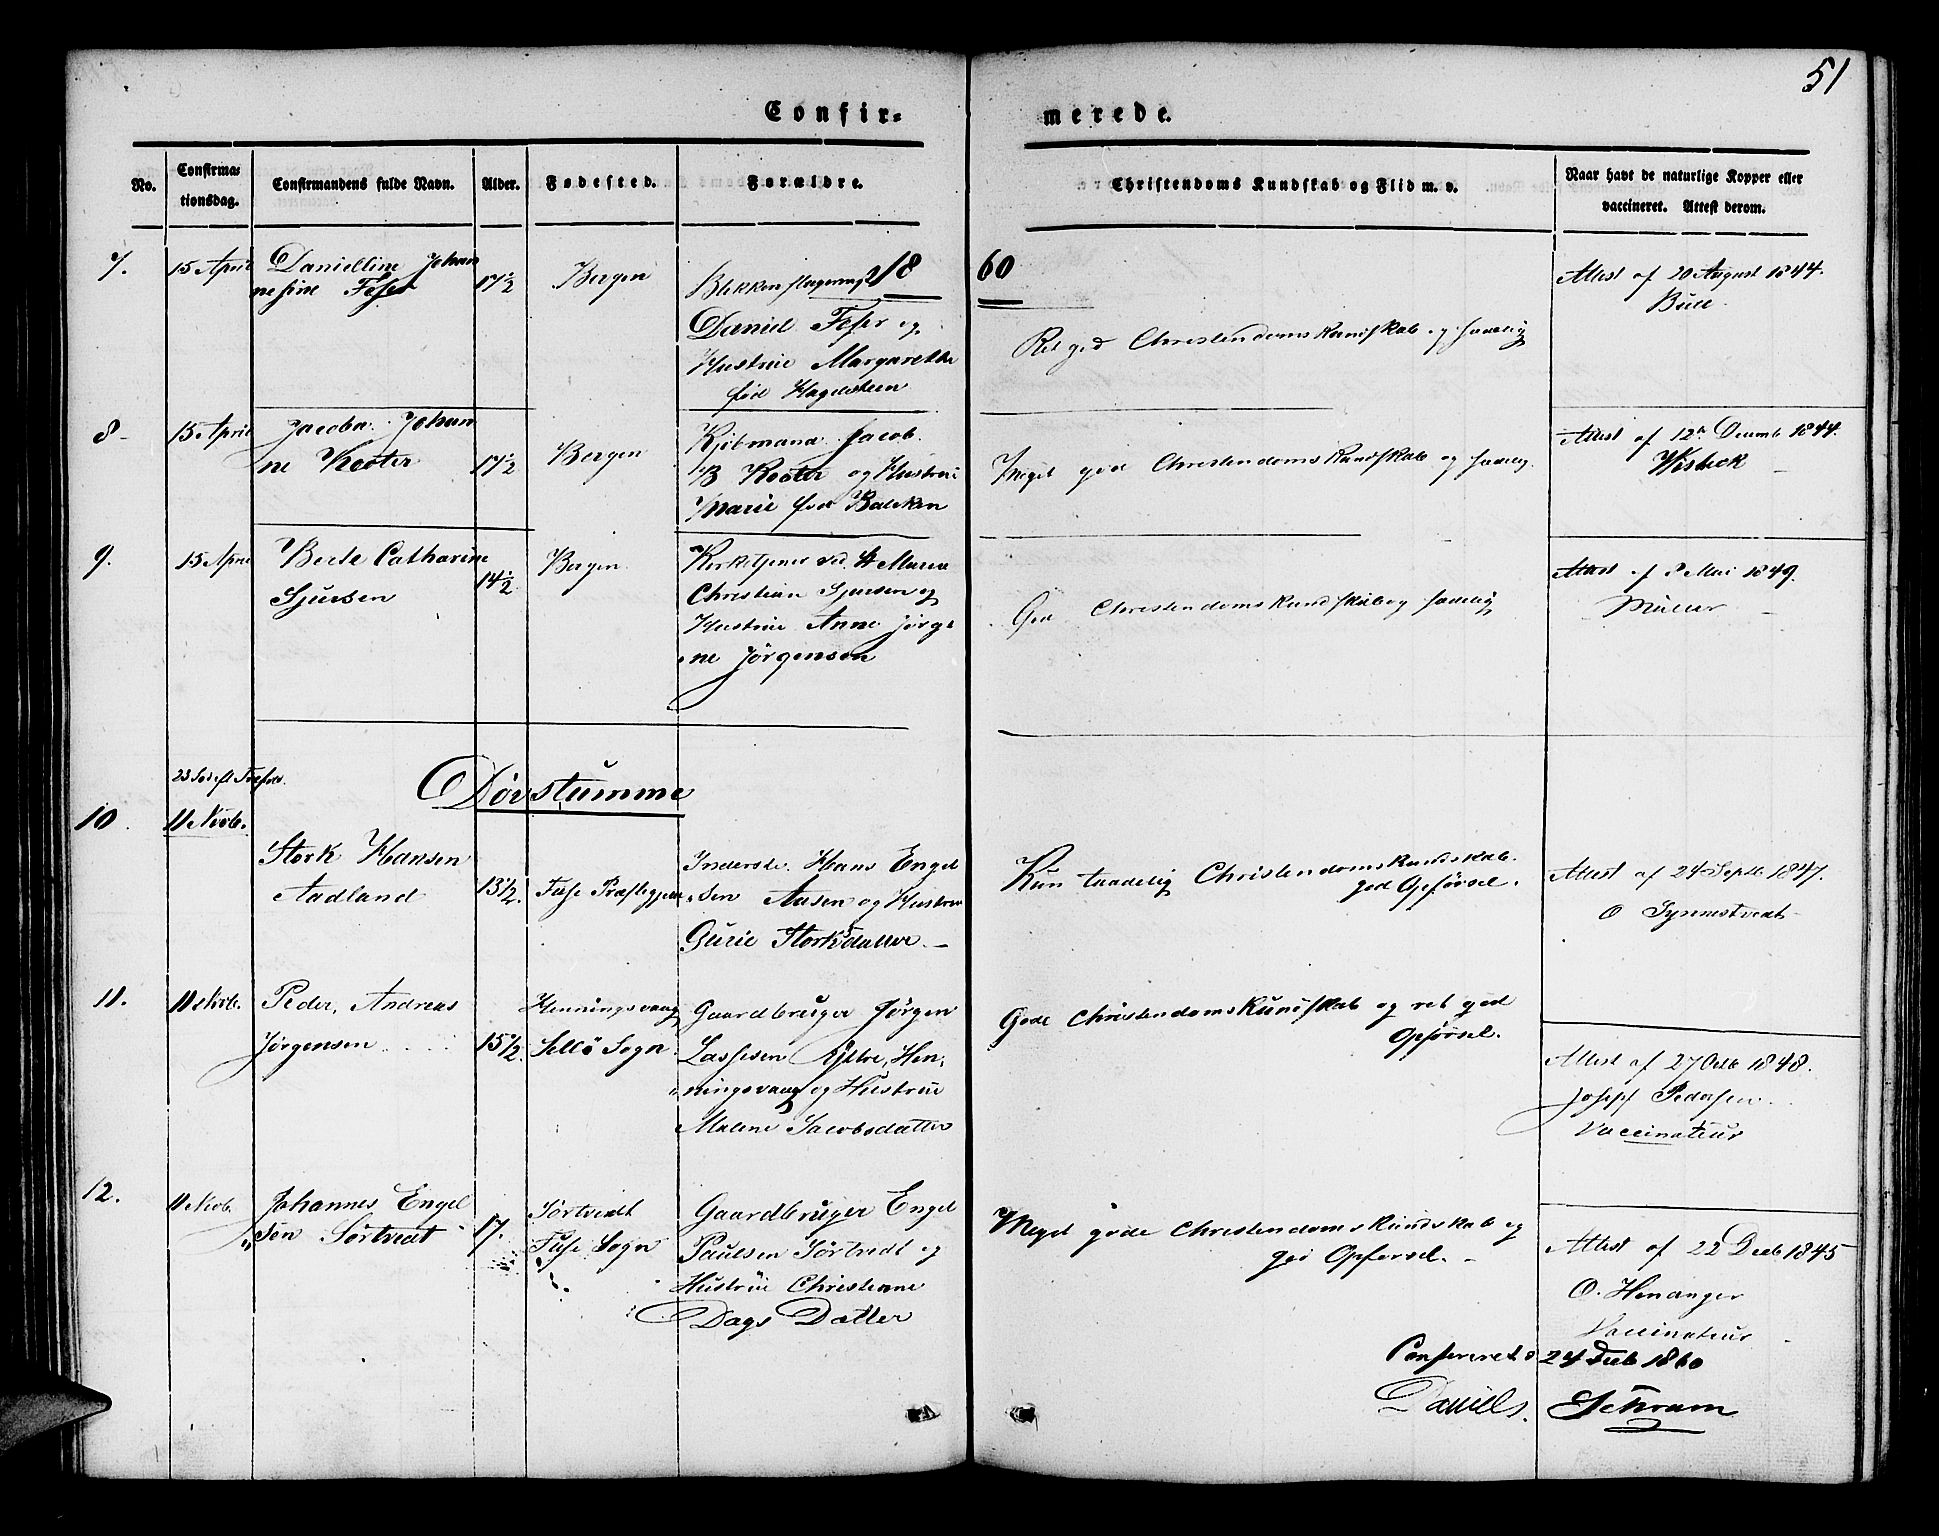 51
Confir=
merede.
No.
Confirma=
tionsdag.
Confirmandens fulde Navn.
Alder.
Fødested.
Forældre.
Christendoms Kundskab og Flid m. v.
Naar havt de naturlige Kopper eller
vaccineret. Attest derom.
18
60
7.
15 April
Danielline Johan
nesine Feser
17½
Bergen
Daniel Feser og
Hustrue Margarethe
fød Hagelsteen
Ret god Christendomskundskab og sædelig
Attest af 20 August 1844.
Bull
8
15 April
Jacoba Johan
ne Koster
17½
Bergen
Kjøbmand Jacob
B Koster og Hustrue
Marie fød Balcken
Meget god Christendomskundskab og sædelig
Attest af 12te Decemb 1844.
Wisbeck
9.
15 April
Berte Catharine
Sjursen
14½
Bergen
Kirketjener ved St Maria
Christian Sjursen og
Hustrue Anne Jørge
ne Jørgensen
God Christendomskundskab og sædelig
Attest af 8 Mai 1849.
Müller
Døvstumme
10.
11 Novb.
Stork Hansen
Aadland
13½.
Fuse Præstegjeld
Inderste Hans Engel
sen Ausen og Hustrue
Gurie Storksdatter
Kun taadelig Christendomskundskab.
god Opførsel.
Attest af 24 Septb 1847.
O Tynnstvedt
11.
11 Novb.
Peder Andreas
Jørgensen
15½.
Henningsvaag
Sellö Sogn
Gaardbruger Jørgen
Lassesen Yttre, Hen-
ningsvaag og Hustrue
Malene Jacobsdatter
Gode Christendomskundskab og ret god
Opførsel.
Attest af 27 Octb 1848.
Joseph Pedersen
Vaccinateur
12.
11 Novb.
Johannes Engel
sen Sörtvedt
17.
Sørtvedt
Fuse Sogn
Gaardbruger Engel
Paulsen Sørtvedt og
Hustrue Christiane
Dags Datter
Meget gode Christendomskundskab og
god Opførsel.
Attest af 22 Decb 1845
O. Henanger
Vaccinateur
Confereret d 24 Decb 1860
Daniel S. Schram